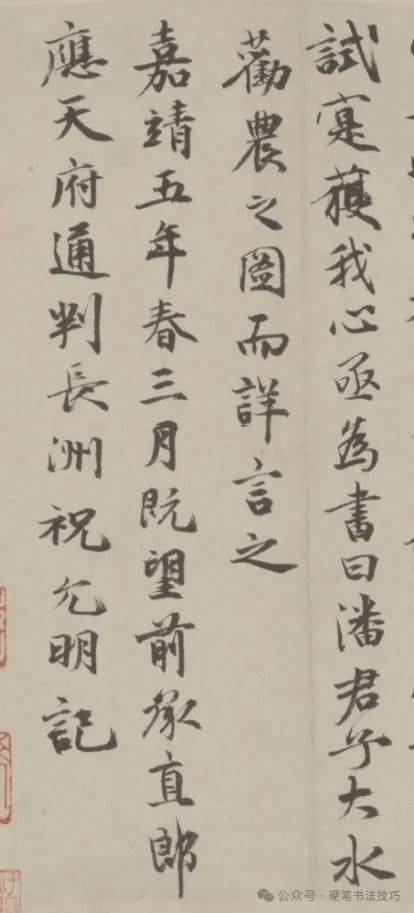 試寔獲我心亟為書曰潘君子大水
勸農之圖而詳言之
嘉靖五年春三月既望前承直郎
應天府通判長洲祝允明記
公众号·硬笔书法技巧